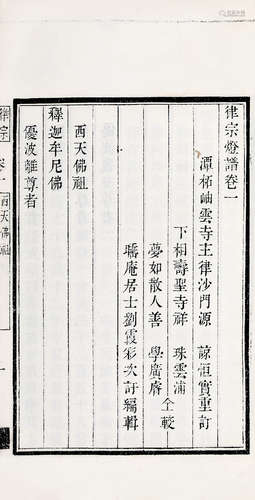 律宗燈譜卷一
潭柘岫雲寺主律沙門源 諒恒實重訂
下相壽聖寺祥 珠雲浦
夢如散人善 學廣齋
仝較
曦庵居士劉霞彩次訂編輯
西天佛祖
釋迦牟尼佛
優波離尊者
律宗
西天佛祖